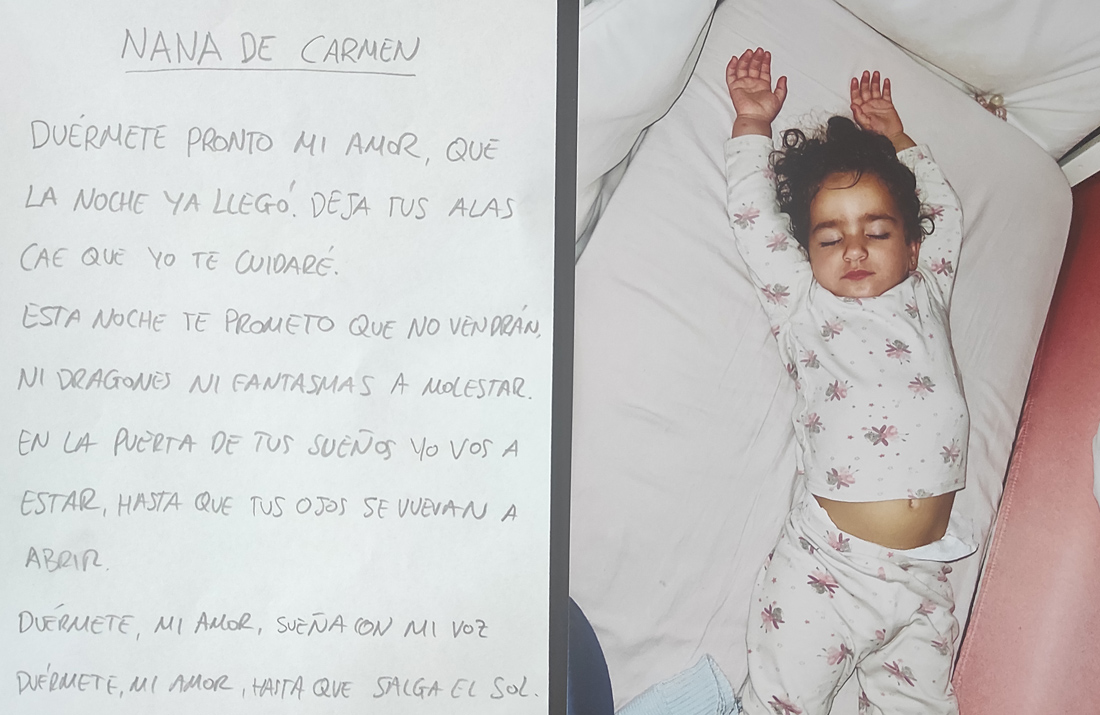 NANA DE CARMEN
DUÉRMETE PRONTO MI AMOR, QUE
LA NOCHE YA LLEGÓ. DEJA TUS ALAS
CAE QUE YO TE CUIDARÉ.
ESTA NOCHE TE PROMETO QUE NO VENDRÁN,
NI DRAGONES NI FANTASMAS A MOLESTAR.
EN LA PUERTA DE TUS SUEÑOS YO VOS A
ESTAR, HASTA QUE TUS OJOS SE VUEVAN A
ABRIR.
DUÉRMETE, MI AMOR, SUEÑA CON MI VOZ
DUÉRMETE, MI AMOR, HASTA QUE SALGA EL SOL.